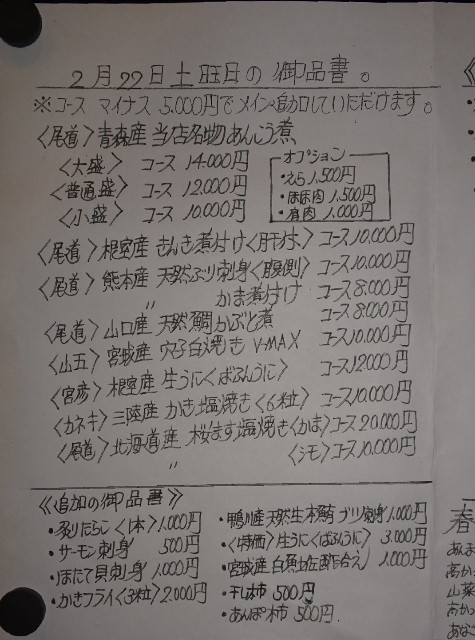 2月22日土旺日の御品書。
※コース マイナス 5.000円でメイン追加していただけます。
〈尾道〉青森産 当店名物あんこう煮
〈大盛〉 コース 14.000円
〈普通盛〉 コース 12.000円
〈小盛〉 コース 10.000円
オプション
・えら 1,500円
・ほほ肉 1,500円
・肩肉 1.000円
〈尾道〉根室産 きんき煮付け〈肝付〉 コース10.000円
〈尾道〉熊本産 天然ぶり刺身〈腹側〉 コース10.000円
〃 かま煮付け コース8.000円
〈尾道〉山口産 天然鯛かぶと煮 コース8.000円
〈山五〉宮城産 穴子白焼き V-MAX コース10.000円
〈宮彦〉根室産 生うに〈ばふんうに〉 コース12000円
〈カネキ〉三陸産 かき塩焼き〈6粒〉 コース10.000円
〈尾道〉北海道産 桜ます塩焼き〈かま〉コース20.000円
〃 〈シモ〉コース10.000円
《追加の御品書》
・炙りたらこ〈1本〉1.000円
・サーモン刺身 500円
・ほたて貝刺身 1.000円
・かきフライ〈3粒〉2.000円
・鴨川産天然生本鮪 ブツ刺身1.000円
・〈特価〉生うに〈ばふんうに〉 3.000円
・宮城産 白魚山佐酢合え〉 1.000円
・干し柿 500円
・あんぽ柿 500円
春
山菜